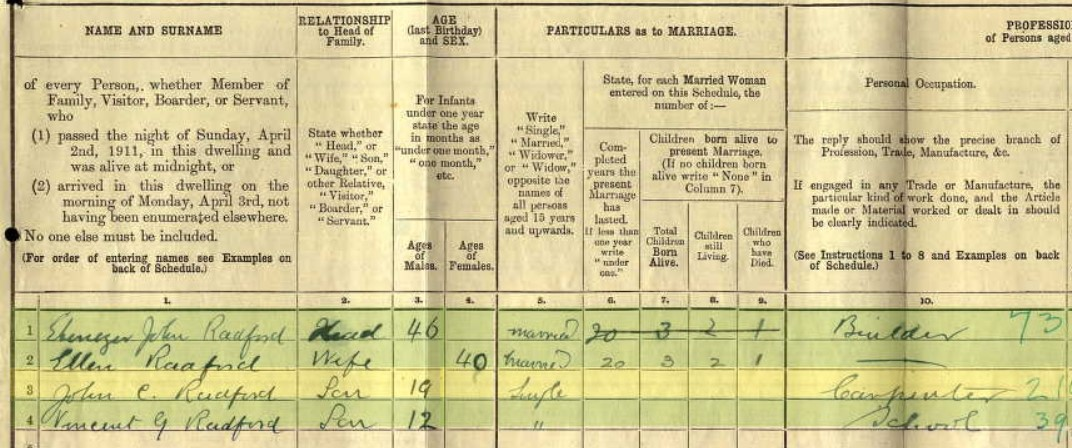 NAME AND SURNAME
of every Person, whether Member of
Family, Visitor, Boarder, or Servant,
who
(1) passed the night of Sunday, April
2nd, 1911, in this dwelling and
was alive at midnight, or
(2) arrived in this dwelling on the
morning of Monday, April 3rd, not
having been enumerated elsewhere.
No one else must be included.
(For order of entering names see Examples on
back of Schedule.)
RELATIONSHIP
to Head of
Family.
State whether
"Head," or
"Wife," "Son,"
"Daughter," or
other Relative,
"Visitor,"
"Boarder," or
"Servant."
AGE
(last Birthday)
and SEX.
For Infants
under one year
state the age
in months as
"under one month,"
"one month,"
etc.
Ages
of
Males.
Ages
of
Females.
PARTICULARS as to MARRIAGE.
Write
"Single,"
"Married,"
"Widower,"
or "Widow,"
opposite the
names of
all persons
aged 15 years
and upwards.
State, for each Married Woman
entered on this Schedule, the
number of:—
Com-
pleted
years the
present
Marriage
has
lasted.
If less than
one year
write
"under
one."
Children born alive to
present Marriage.
(If no children born
alive write "None" in
Column 7).
Total
Children
Born
Alive.
Children
still
Living.
Children
who
have
Died.
PROFESSIO
of Persons aged
Personal Occupation.
The reply should show the precise branch of
Profession, Trade, Manufacture, &c.
If engaged in any Trade or Manufacture, the
particular kind of work done, and the Article
made or Material worked or dealt in should
be clearly indicated.
(See Instructions 1 to 8 and Examples on back
of Schedule.)
1. 2. 3. 4. 5. 6. 7. 8. 9. 10.
1 Ebenezer John Radford Head 46 married 20 3 2 1 Builder 73
2 Ellen Radford Wife 40 married 20 3 2 1
3 John C. Radford Son 19 Single Carpenter
4 Vincent G Radford Son 12 " School 39